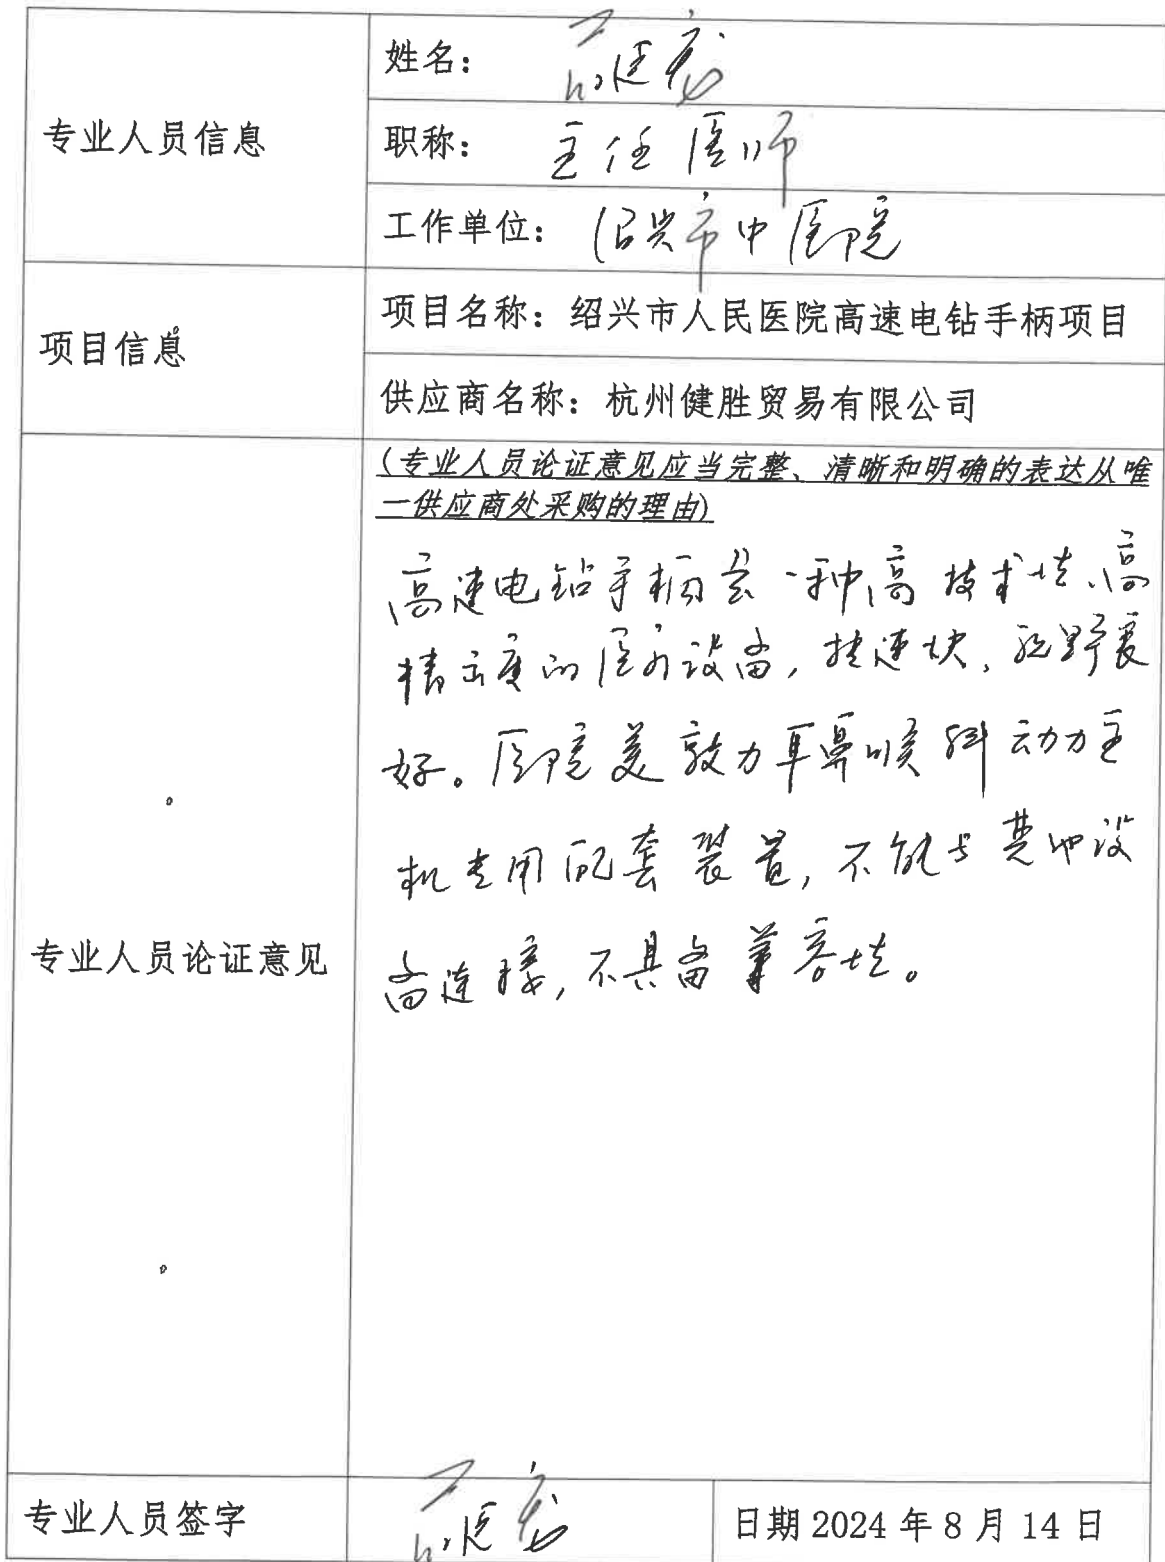 专业人员信息
姓名：
职称： 主任医师
工作单位： 绍兴市中医院
项目信息
项目名称：绍兴市人民医院高速电钻手柄项目
供应商名称：杭州健胜贸易有限公司
专业人员论证意见
(专业人员论证意见应当完整、清晰和明确的表达从唯
一供应商处采购的理由)
高速电钻手柄是一种高技术性、高
精度的医疗设备，转速快，视野良
好。医院美敦力耳鼻喉科动力主
机专用配套装置，不能与其他设
备连接，不具备兼容性。
专业人员签字
日期 2024 年 8 月 14 日